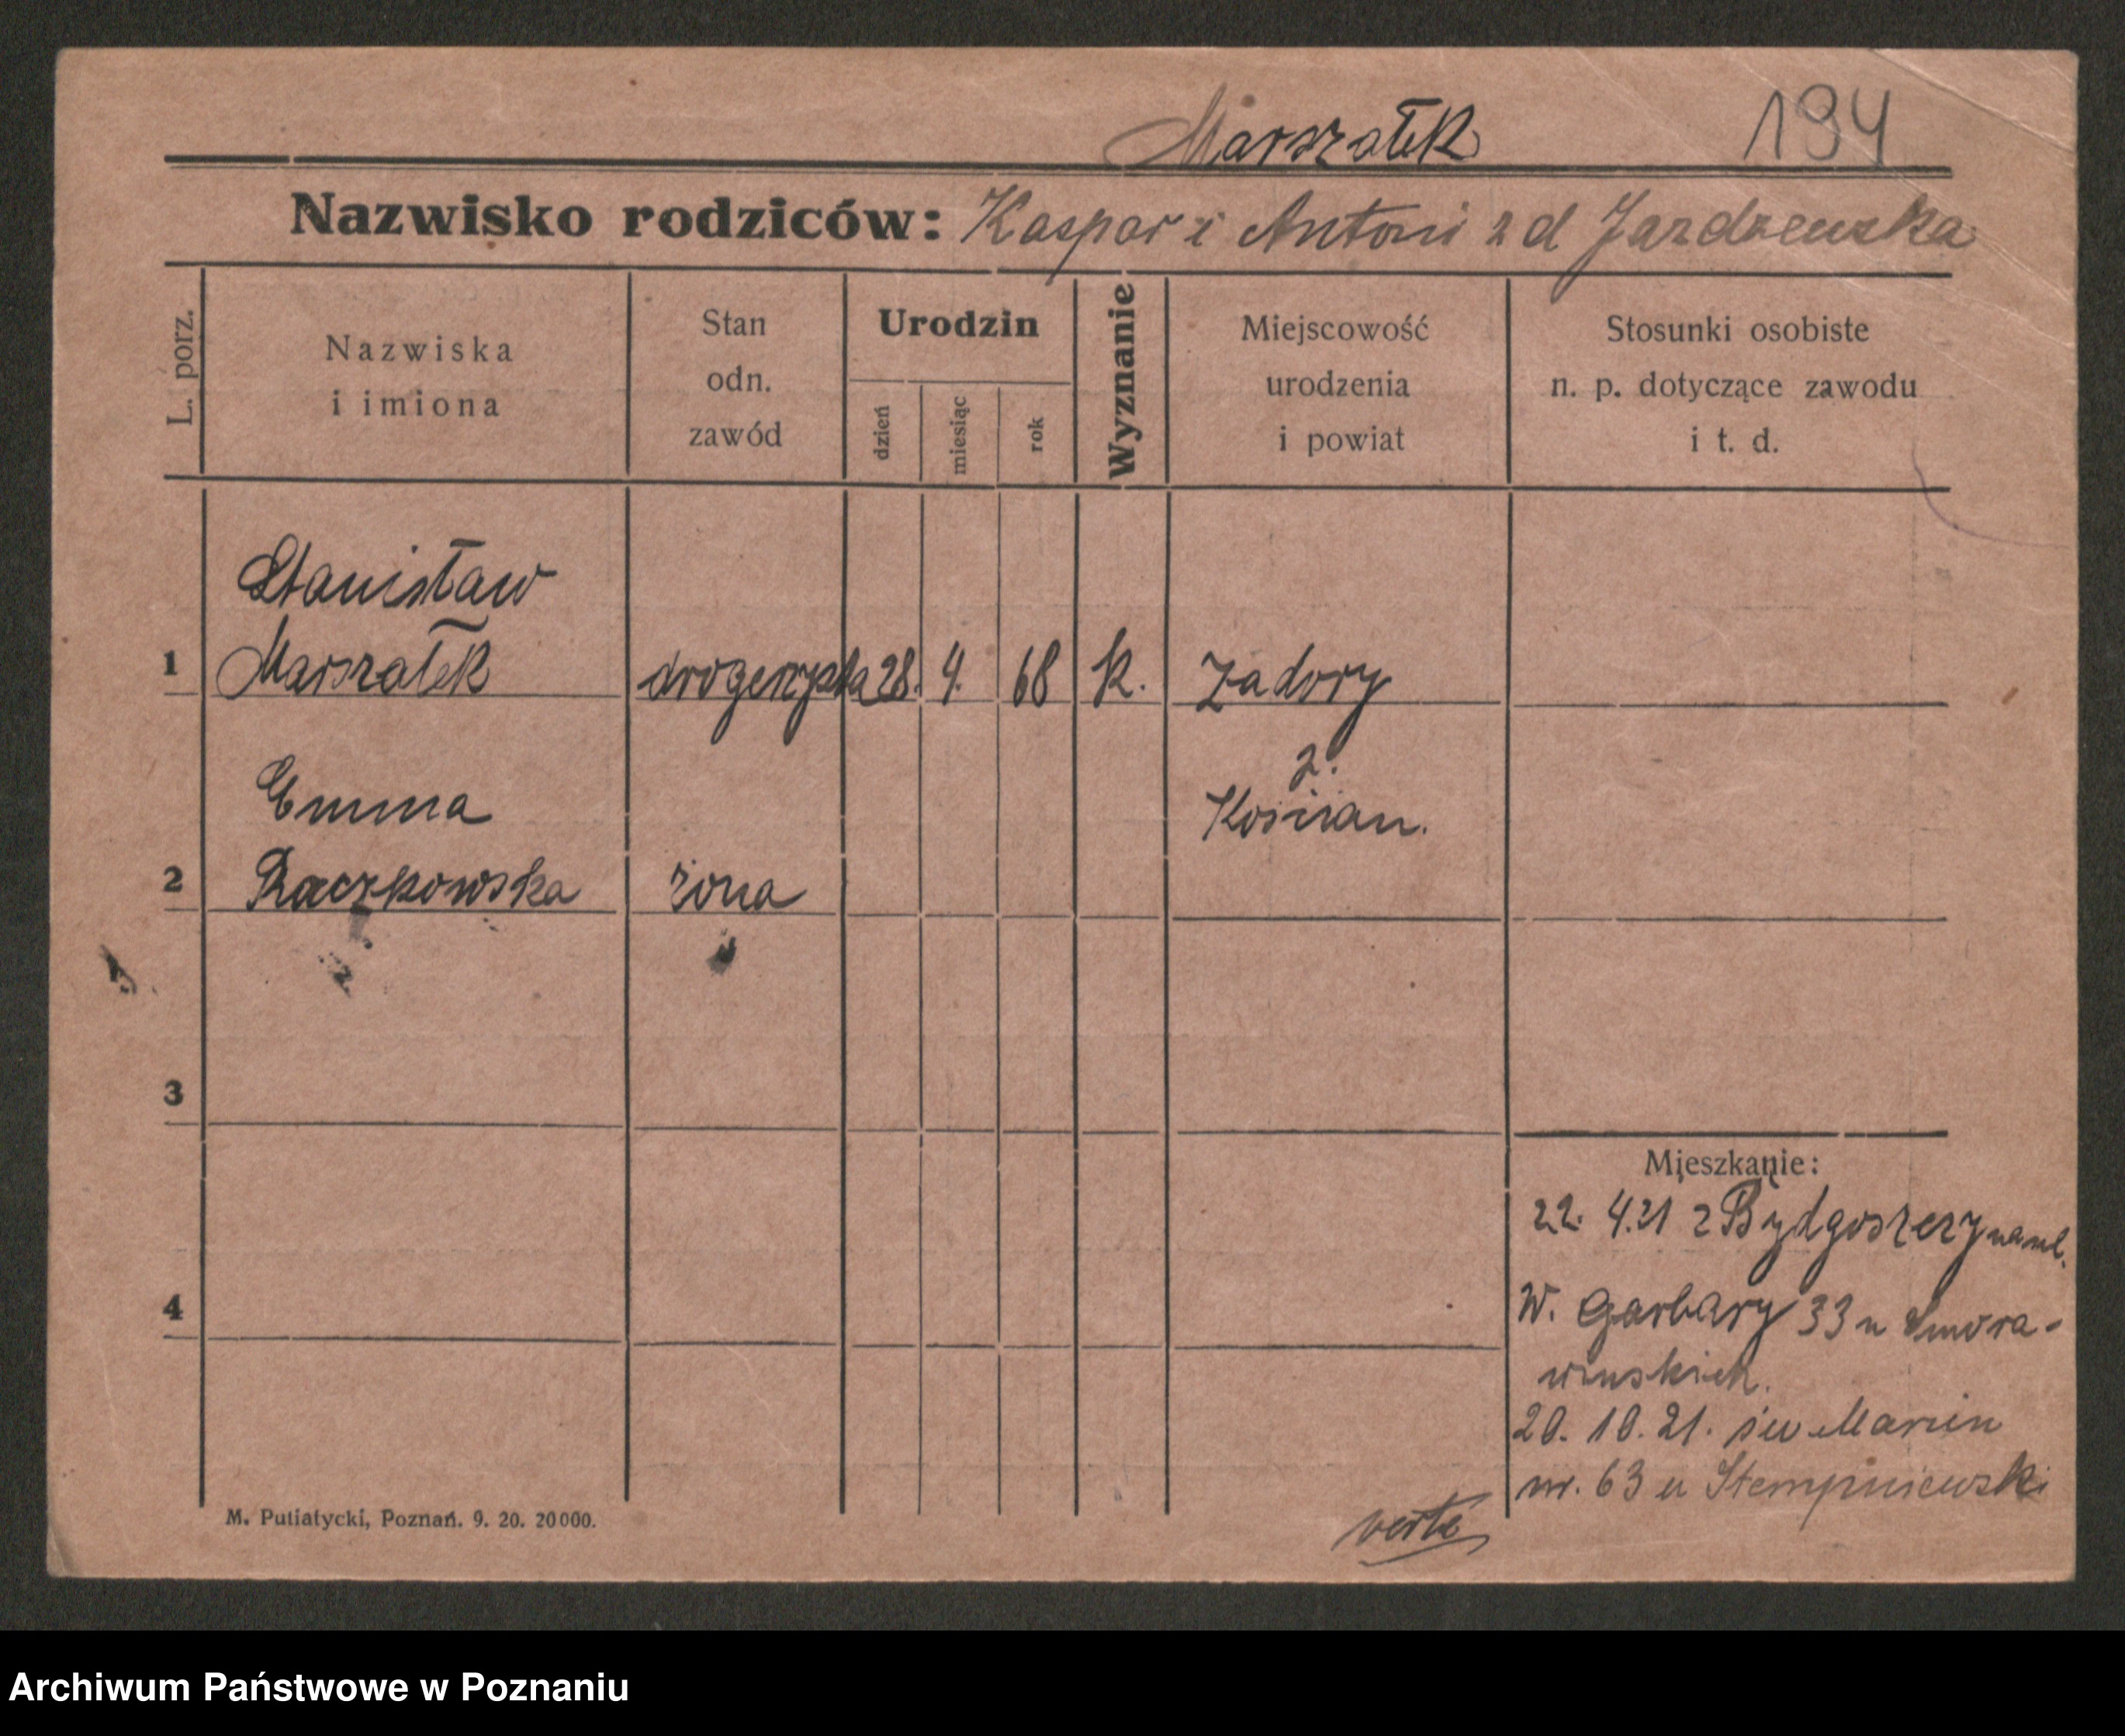 Marszałek 194
Nazwisko rodziców: Kaspar i Antoni z d Jazdzewska
L. porz.
Nazwiska
i imiona
Stan
odn.
zawód
Urodzin
dzień
miesiąc
rok
Wyznanie
Miejscowość
urodzenia
i powiat
Stosunki osobiste
n. p. dotyczące zawodu
i t. d.
Stanisław
1 Marszałek drogerzysta 28. 4. 68 k. Zadory
p.
Emma Kościan.
2 Raczkowska żona
3
4
Mieszkanie:
22. 4. 21 z Bydgoszczy
W. Garbary 33 u Smora-
wińskich.
20. 10. 21. św Marcin
nr. 63 u Stempniewski
verte
M. Putiatycki, Poznań. 9. 20. 20000.
Archiwum Państwowe w Poznaniu